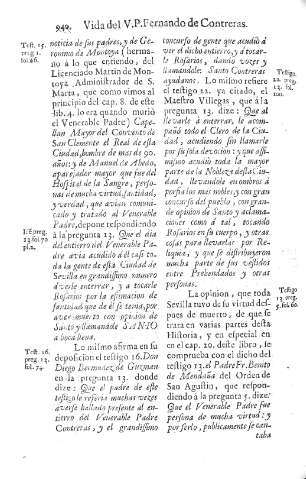 940. Vida del V.P. Fernando de Contreras.
Test. 15.
preg. 1.
fol. 6.
noticia de sus padres, y de Ge-
ronima de Montoya (herma-
no à lo que entiendo, del
Licenciado Martin de Mon-
toya, Administrador de S.
Marta, que como vimos al
principio del cap. 8. de este
lib. 4. lo era quando muriò
el Venerable Padre) Cape-
llan Mayor del Convento de
San Clemente el Real de esta
Ciudad, hombre de mas de 90.
años; y de Manuel de Abreu
aparejador mayor que fue del
Hospital de la Sangre, perso-
nas de mucha virtud, santidad,
y verdad, que avian comuni-
cado y tratado al Venerable
Padre, depone respondiendo
à la pregunta 13. Que el dia
del entierro del Venerable Pa-
dre avia acudido à èl casi to-
da la gente de esta Ciudad de
Sevilla en grandissimo numero
à verle enterrar, y à tocarle
Rosarios por la estimacion de
santidad que de èl se tenia, por
aver muerto con opinion de
Santo y llamandole SANTO
à boca llena.
preg.
13. fol. 70
pla. 2.
Lo mismo afirma en su
deposicion el testigo 16. Don
Diego Bermudez de Guzman
en la pregunta 13. donde
dize: Que el padre de este
testigo le referia muchas vezes
averse hallado presente al en-
tierro del Venerable Padre
Contreras, y el grandissimo
Test. 16.
preg. 13.
fol. 74.
concurso de gente que acudiò à
ver el dicho entierro, y à tocar-
le Rosarios, dando vozes y
llamandole: Santo Contreras
ayudame. Lo mismo refiere
el testigo 22. ya citado, el
Maestro Villegas, que à la
pregunta 13. dize: Que al
llevarle à enterrar, le acom-
pañò todo el Clero de la Ciu-
dad, acudiendo sin llamarle
por su sola devocion: y que assi-
mismo acudiò toda la mayor
parte de la Nobleza desta Ciu-
dad, llevandole en ombros à
porfia los mas nobles; y con gran
concurso del pueblo, con gran-
de opinion de Santo y aclama-
ciones como à tal, y tocando
Rosarios en su cuerpo, y otras
cosas para llevarlas por Re-
liquea, y que se distribuyeron
mucha parte de sus vestidos
entre Prebendados y otras
personas.
Testigo
22. preg.
13. fol.
La opinion, que toda
Sevilla tuvo de su virtud des-
pues de muerto, de que se
trata en varias partes desta
Historia, y en especial en
en el cap. 20. deste libro, se
comprueba con el dicho del
testigo 13. el Padre Fr. Benito
de Mendaña del Orden de
San Agustin, que respon-
diendo à la pregunta 5. dize:
Que el Venerable Padre fue
persona de mucha virtud: y
por serlo, publicamente se can-
taba
Testigo
13. preg.
5. fol. 60